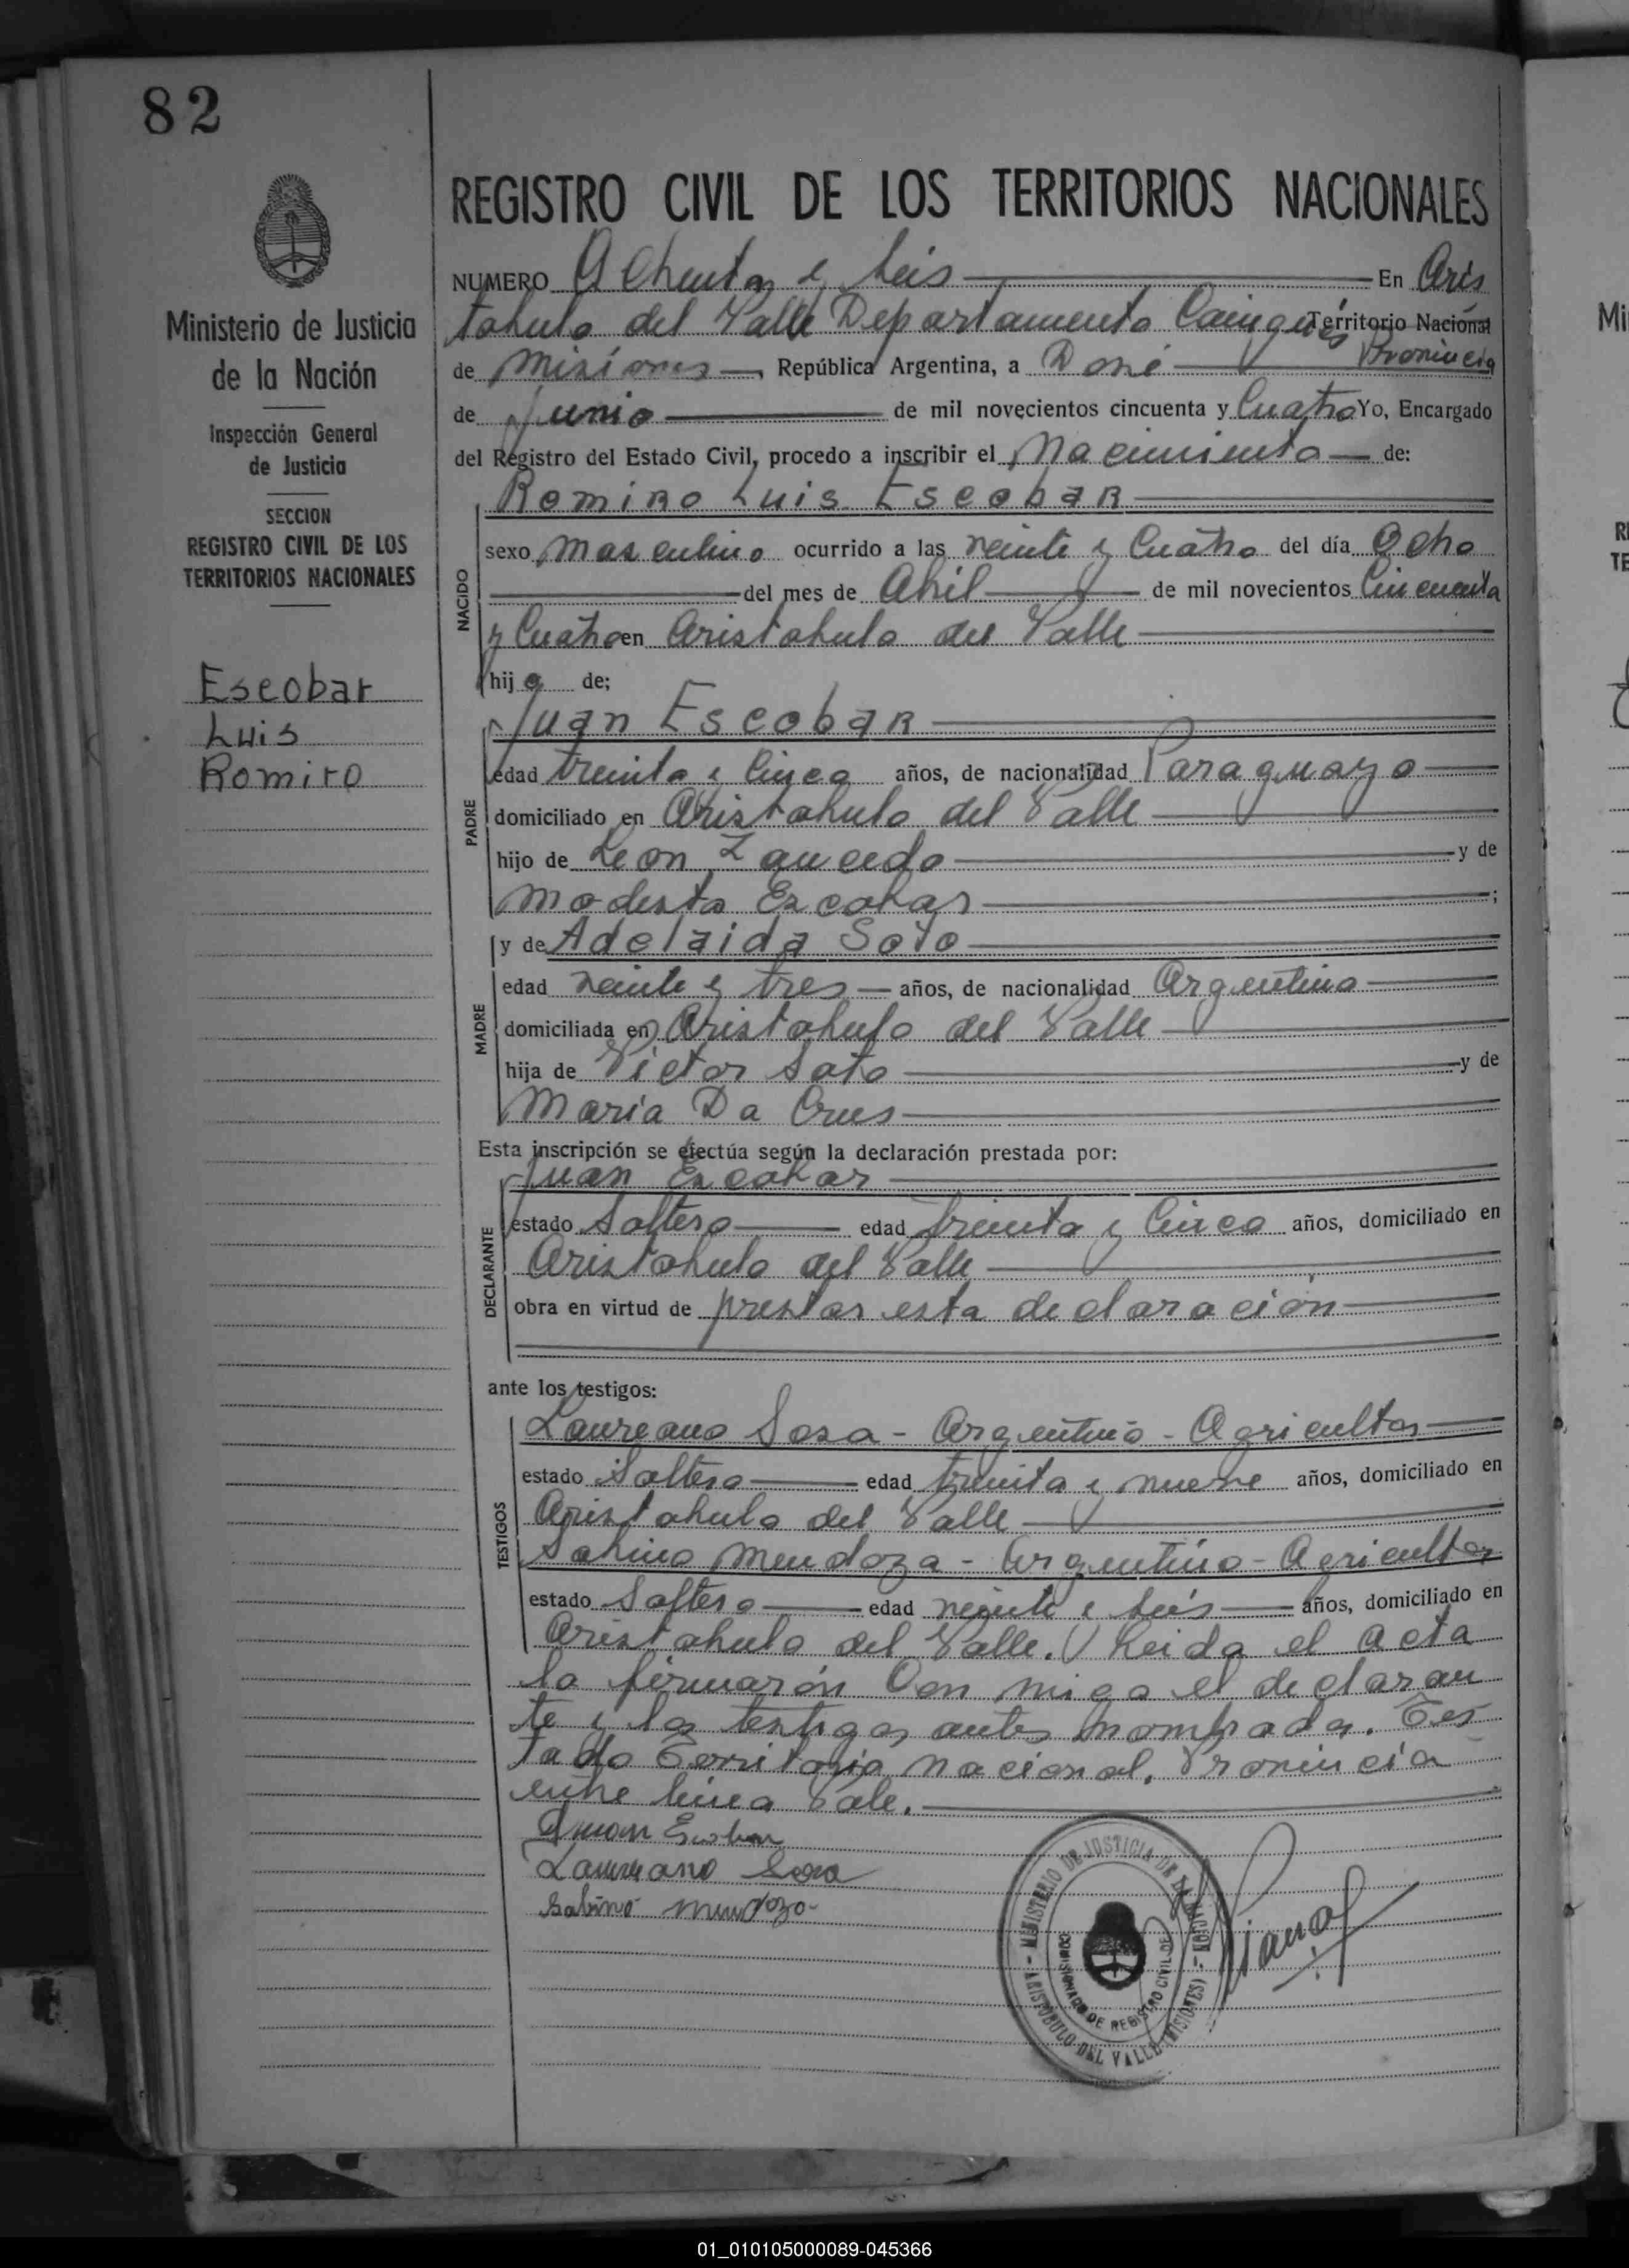 82
Ministerio de Justicia
de la Nación
Inspección General
de Justicia
SECCION
REGISTRO CIVIL DE LOS
TERRITORIOS NACIONALES
Escobar
Luis
Romiro
REGISTRO CIVIL DE LOS TERRITORIOS NACIONALES
NUMERO Ochenta y Seis En Aris
tobulo del Valle Departamento Cainguás Territorio Nacional
Provincia
de Misiones, República Argentina, a Dose
de Junio de mil novecientos cincuenta y Cuatro Yo, Encargado
del Registro del Estado Civil, procedo a inscribir el Nacimiento de:
NACIDO
Romiro Luis Escobar
sexo masculino ocurrido a las veinte y Cuatro del día Ocho
del mes de Abril de mil novecientos Cincuenta
y Cuatro en Aristobulo del Valle
hijo de;
PADRE
Juan Escobar
edad treinta y Cinco años, de nacionalidad Paraguayo
domiciliado en Aristobulo del Valle
hijo de Leon y de
Modesta Escobar;
MADRE
y de Adelaida Soto
edad veinte y tres años, de nacionalidad Argentina
domiciliada en Aristobulo del Valle
hija de Victor Soto y de
Maria Da Crus
Esta inscripción se efectúa según la declaración prestada por:
DECLARANTE
Juan Escobar
estado Soltero edad treinta y Cinco años, domiciliado en
Aristobulo del Valle
obra en virtud de prestar esta declaración
ante los testigos:
TESTIGOS
Laureano Sosa - Argentino - Agricultor
estado Soltero edad treinta y nueve años, domiciliado en
Aristobulo del Valle
Sabino Mendoza - Argentino - Agricultor
estado Soltero edad veinte y seis años, domiciliado en
Aristobulo del Valle. Leida el Acta
la firmarón Con migo el declaran
te y los testigos antes nombrados. Tes
tado Territorio nacional. Provincia
entre linea Vale.
Juan Escobar
Laureano Sosa
Sabino Mendozo
- MINISTERIO DE JUSTICIA DE LA NACION - ARISTOBULO DEL VALLE (MISIONES)
COMISIONADO DE REGISTRO CIVIL DE
Mi
01_010105000089-045366